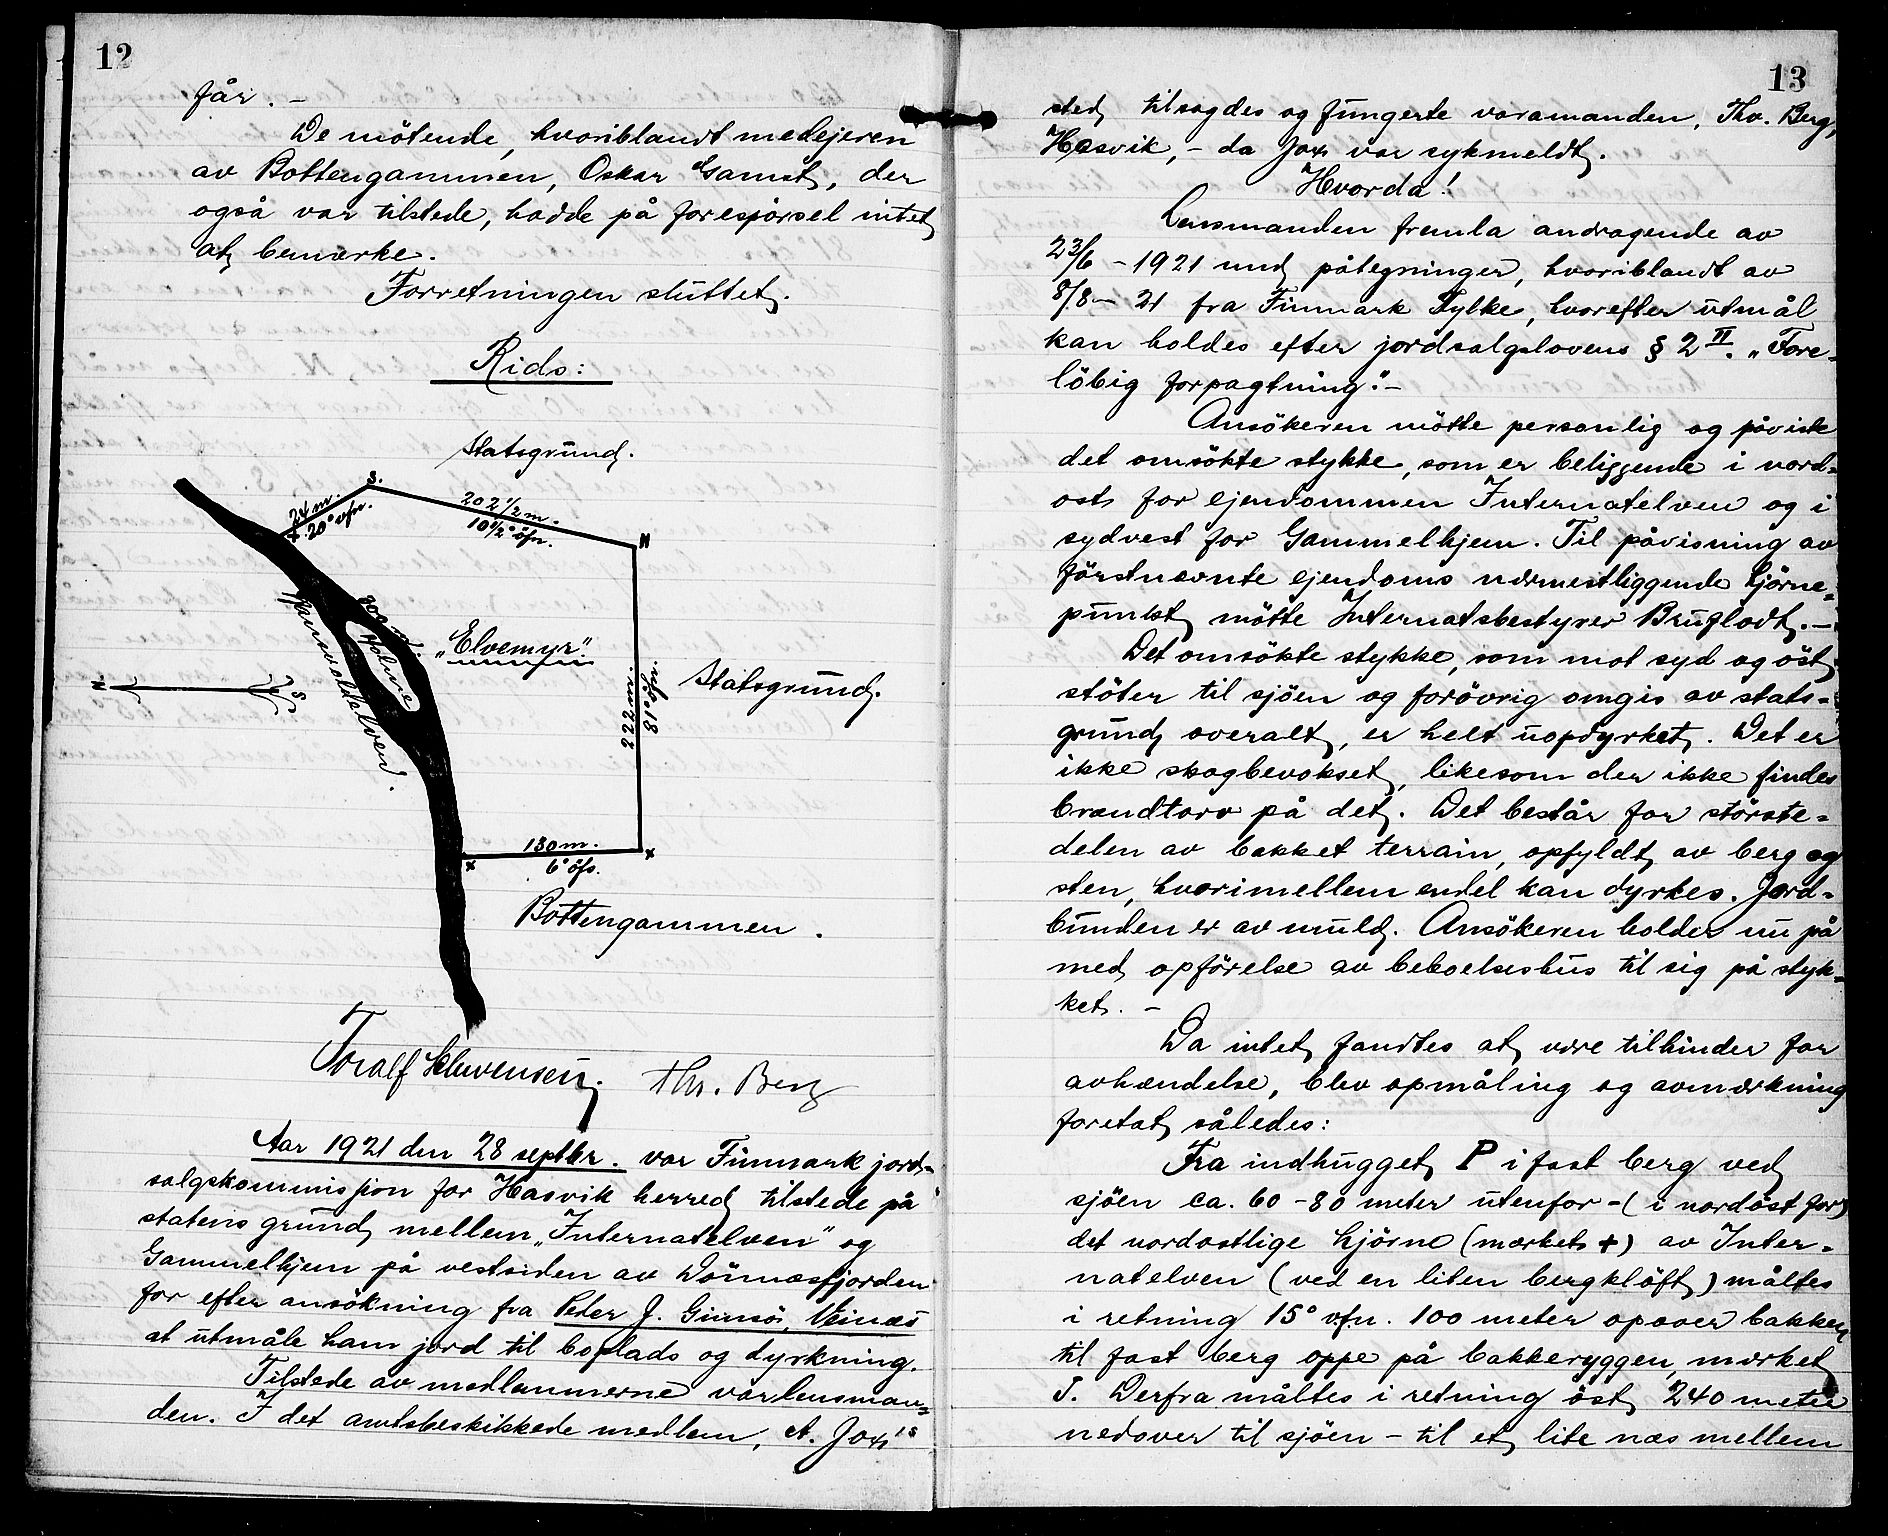 12
får. –
De mötende, hvoriblandt medejeren
av Bottengammen, Oskar Gamst, der
også var tilstede, hadde på forespörsel intet
at bemerke.
Forretningen sluttet.
Rids:
Statsgrund.
S.
24 m.
20° vfn.
202 1/2 m.
10 1/2° öfn.
N
300 m.
Holme
"Elvemyr"
222 m.
81° vfn.
Statsgrund.
N
S
130 m.
6° öfs.
x
x
Bottengammen.
Toralf Schwensen. Thv. Berg
Aar 1921 den 28 septbr. var Finmark jord-
salgskommissjion for Hasvik herred tilstede på
statens grund mellem "Internatelven" og
Gammelhjem på vestsiden av Dönnesfjorden
for efter ansökning fra Peder J. Gimsö, Veines
at utmåle ham jord til boplads og dyrkning.
Tilstede av medlemmerne var lensman-
den. I det amtsbeskikkede medlem, A. Jox's
13
sted tilsagdes og fungerte varamanden, Thv. Berg,
Hasvik, – da Jox var sykmeldt.
Hvorda!
Lensmanden fremla andragende av
23/6 – 1921 med påtegninger, hvoriblandt av
8/8 – 21 fra Finmark Fylke, hvorefter utmål
kan holdes efter jordsalgslovens § 2 II. "Fore-
löbig forpagtning". –
Ansökeren mötte personlig og påviste
det omsökte stykke, som er beliggende i nord-
ost for ejendommen Internatelven og i
sydvest for Gammelhjem. Til påvisning av
förstnevnte ejendoms nærmestliggende hjörne-
punkt mötte Internatsbestyrer Bruflodt. –
Det omsökte stykke, som mot syd og öst
stöter til sjöen og forövrig omgis av stats-
grund overalt, er helt uopdyrket. Det er
ikke skogbevokset, likesom der ikke findes
brændtorv på det. Det består for störste-
delen av bakket terrain, opfyldt av berg og
sten, hvorimellem endel kan dyrkes. Jord-
bunden er av muld. Ansökeren holder nu på
med opförelse av beboelseshus til sig på styk-
ket. –
Da intet fandtes at være tilhinder for
avhændelse, blev opmåling og avmerkning
foretat således:
Fra indhugget P i fast berg ved
sjöen ca. 60 – 80 meter utenfor – (i nordöst for)
det nordostlige hjörne (merket +) av Inter-
natelven (ved en liten bergklöft) måltes
i retning 15° vfn. 100 meter opover bakken
til fast berg oppe på bakkeryggen, merket
J. Derfra måltes i retning öst 240 meter
nedover til sjöen – til et lite nes mellem